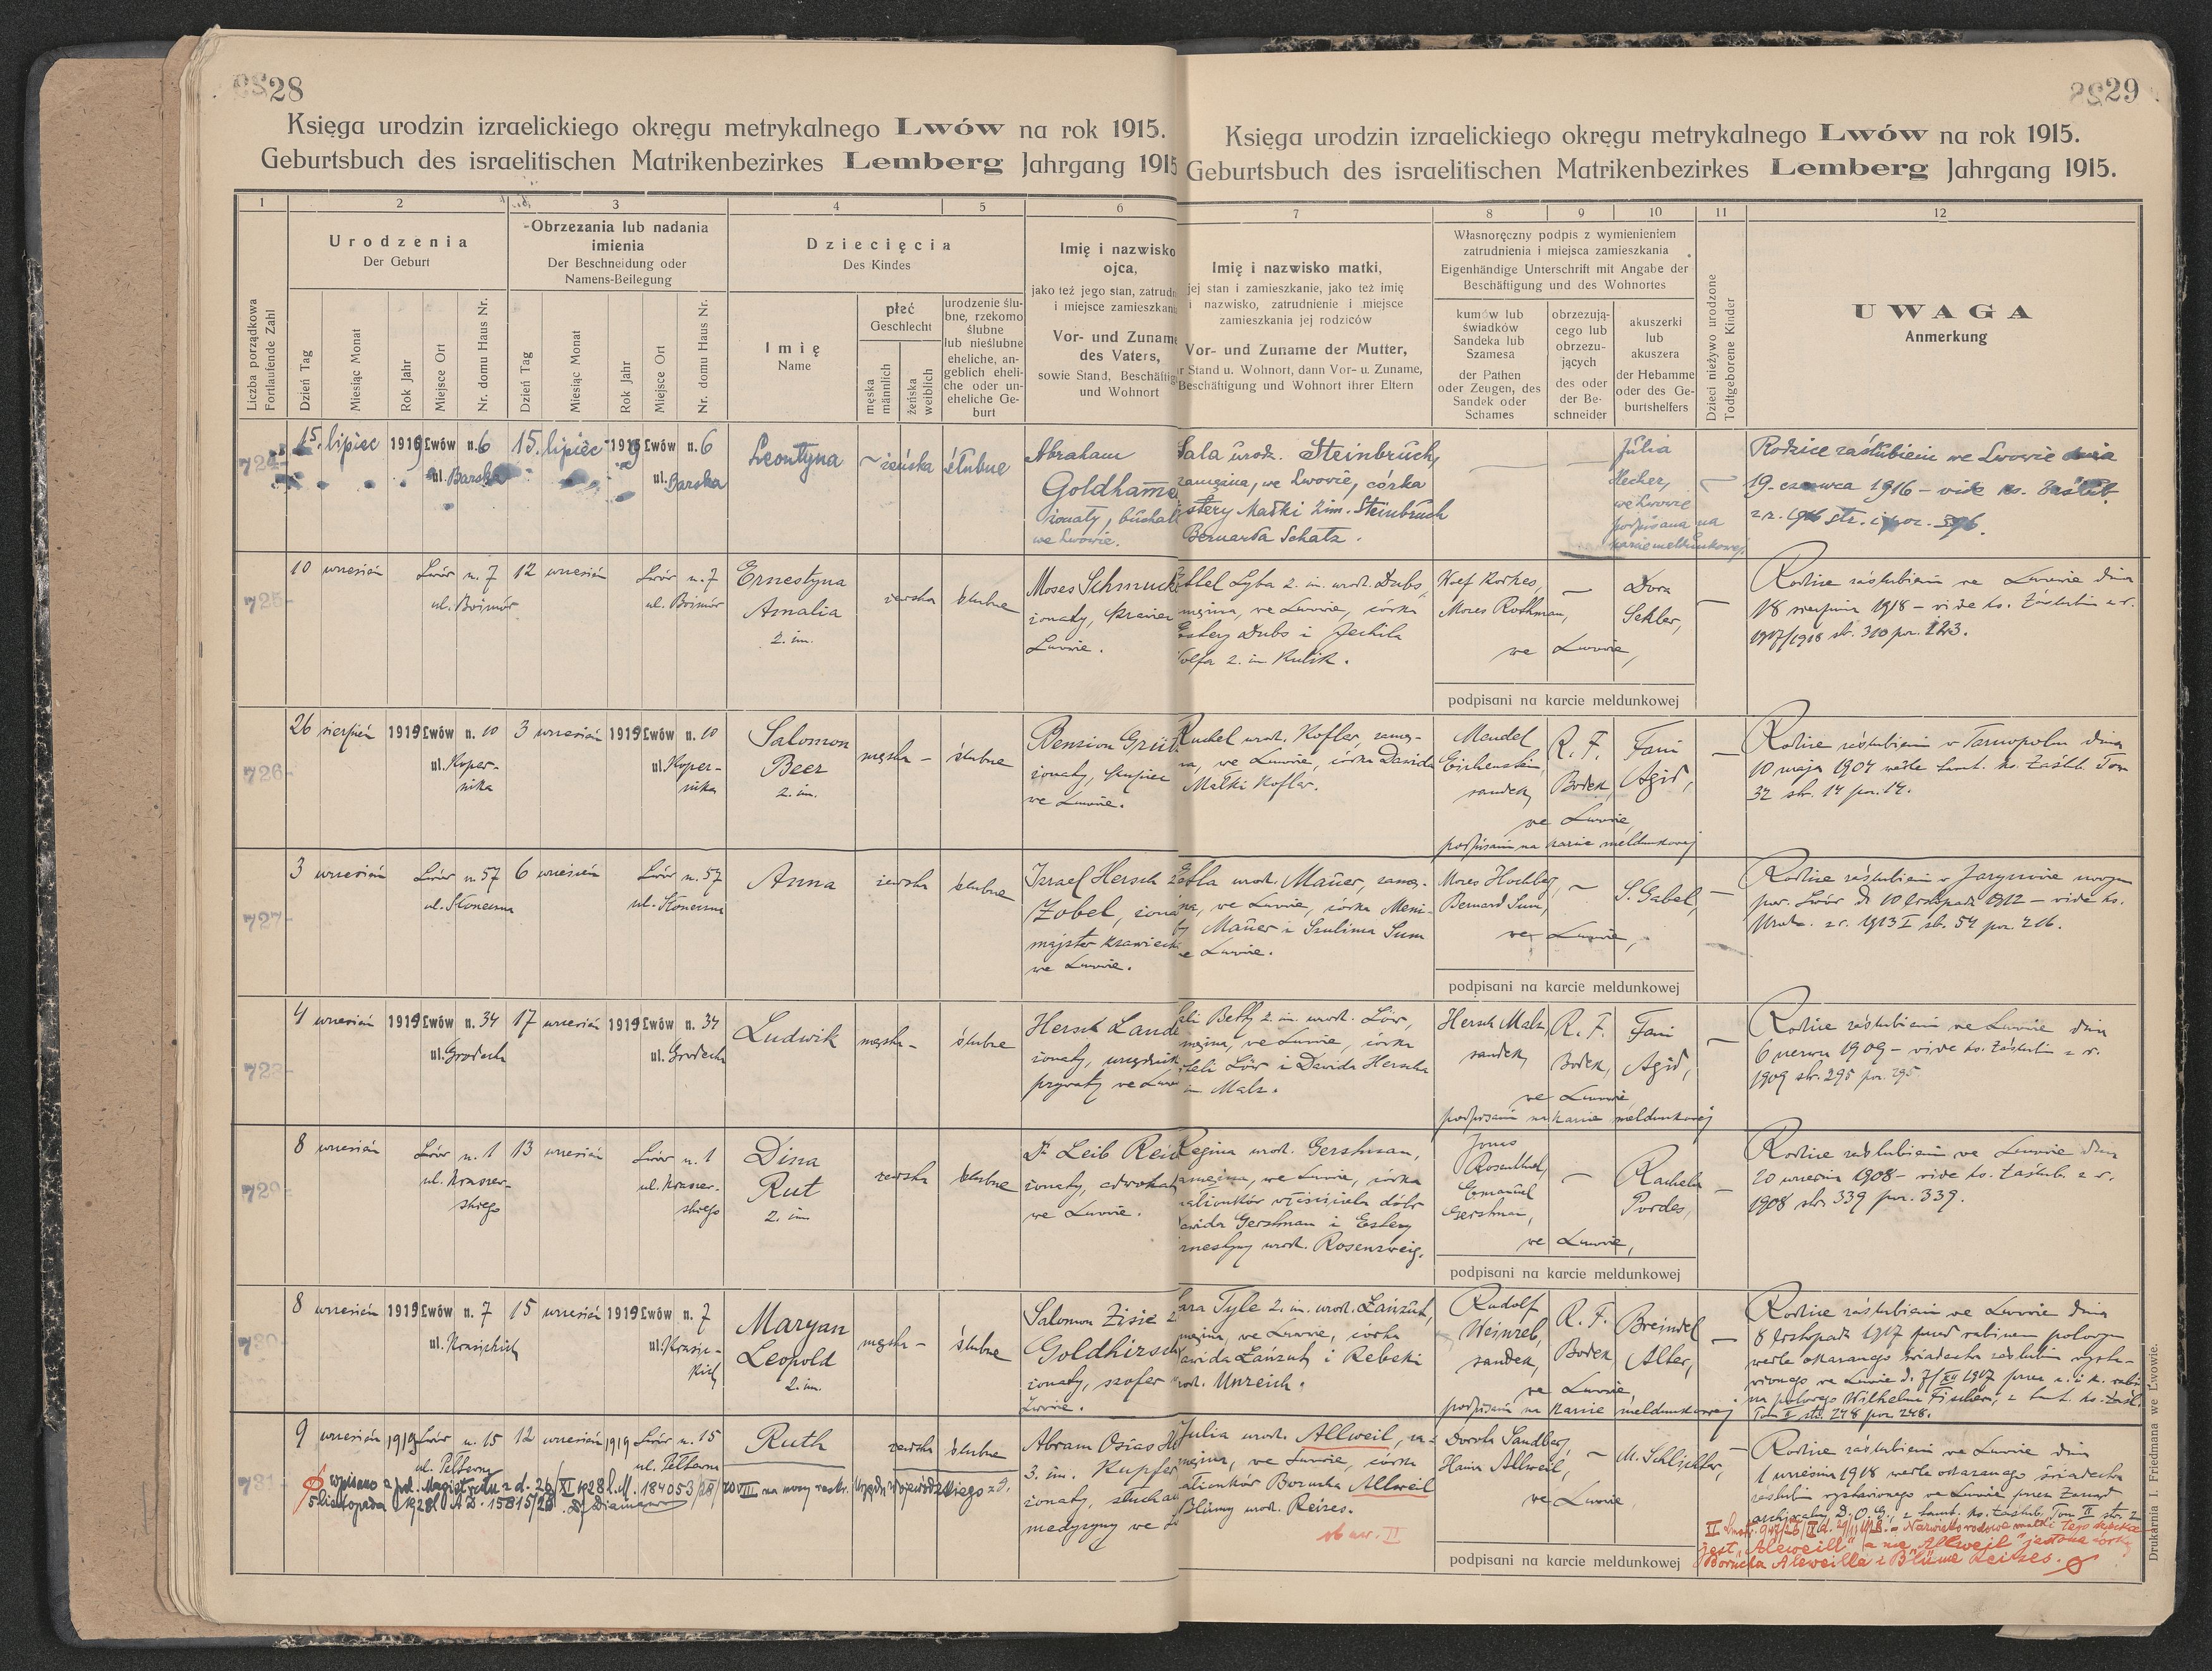 28
Księga urodzin izraelickiego okręgu metrykalnego Lwów na rok 1915.
Geburtsbuch des israelitischen Matrikenbezirkes Lemberg Jahrgang 1915
1 2 3 4 5 6
Liczba porządkowa
Fortlaufende Zahl
Urodzenia
Der Geburt
Dzień Tag
Miesiąc Monat
Rok Jahr
Miejsce Ort
Nr. domu Haus Nr.
Obrzezania lub nadania
imienia
Der Beschneidung oder
Namens-Beilegung
Dzień Tag
Miesiąc Monat
Rok Jahr
Miejsce Ort
Nr. domu Haus Nr.
Dziecięcia
Des Kindes
Imię
Name
płeć
Geschlecht
męska
männlich
żeńska
weiblich
urodzenie ślu-
bne, rzekomo
ślubne
lub nieślubne
eheliche, an-
geblich eheli-
che oder un-
eheliche Ge-
burt
Imię i nazwisko
ojca,
jako też jego stan, zatrudn
i miejsce zamieszkani
Vor- und Zuname
des Vaters,
sowie Stand, Beschäftig
und Wohnort
724
15. lipiec 1919 Lwów n. 6 15. lipiec 1919 Lwów n. 6
ul. Barska ul. Barska
Leontyna
żeńska ślubne
Abraham
Goldhame
żonaty, buchal
we Lwowie.
725
10 wrzesień Lwów n. 7 12 wrzesień Lwów n. 7
ul. Boimów ul. Boimów
Ernestyna
Amalia
2. im.
żeńska ślubne
Moses Schmuck
żonaty, krawiec
Lwowie.
726
26 sierpień 1919 Lwów n. 10 3 wrzesień 1919 Lwów n. 10
ul. Koper-
nika
ul. Koper-
nika
Salomon
Beer
2. im.
męska – ślubne
Bension Grün
żonaty, kupiec
we Lwowie.
727
3 wrzesień Lwów n. 57 6 wrzesień Lwów n. 57
ul. Słoneczna ul. Słoneczna
Anna
żeńska ślubne
Izrael Hersch 2
Zobel, żona
majster krawiecki
we Lwowie.
728
4 wrzesień 1919 Lwów n. 34 17 wrzesień 1919 Lwów n. 34
ul. Grodecka ul. Grodecka
Ludwik
męska – ślubne
Hersch Lande
żonaty, urzędnik
prywatny we Lwow
729
8 wrzesień Lwów n. 1 13 wrzesień Lwów n. 1
ul. Kraszew-
skiego
ul. Kraszew-
skiego
Dina
Rut
2. im.
żeńska ślubne
Dr Leib Reic
żonaty, adwokat
we Lwowie.
730
8 wrzesień 1919 Lwów n. 7 15 wrzesień 1919 Lwów n. 7
ul. Krasickich
ul. Krasic-
kich
Maryan
Leopold
2. im.
męska – ślubne
Salomon Zisie 2
Goldhirsch
żonaty, szofer
Lwowie.
731
9 wrzesień 1919 Lwów n. 15 12 wrzesień 1919 Lwów n. 15
ul. Pełtewna ul. Pełtewna
Ruth
żeńska ślubne
Abram Osias
3. im. Kupfer
żonaty, słuchacz
medycyny we
wpisano z pol. Magistratu z d. 26/XI 1928 l. M. 184053/28/
5 listopada 1928 l. A.D. 15815/28.
29
Księga urodzin izraelickiego okręgu metrykalnego Lwów na rok 1915.
Geburtsbuch des israelitischen Matrikenbezirkes Lemberg Jahrgang 1915.
7 8 9 10 11 12
Imię i nazwisko matki,
jej stan i zamieszkanie, jako też imię
i nazwisko, zatrudnienie i miejsce
zamieszkania jej rodziców
Vor- und Zuname der Mutter,
r Stand u. Wohnort, dann Vor- u. Zuname,
Beschäftigung und Wohnort ihrer Eltern
Własnoręczny podpis z wymienieniem
zatrudnienia i miejsca zamieszkania
Eigenhändige Unterschrift mit Angabe der
Beschäftigung und des Wohnortes
kumów lub
świadków
Sandeka lub
Szamesa
der Pathen
oder Zeugen, des
Sandek oder
Schames
obrzezują-
cego lub
obrzezu-
jących
des oder
der Be-
schneider
akuszerki
lub
akuszera
der Hebamme
oder des Ge-
burtshelfers
Dzieci nieżywo urodzone
Todtgeborene Kinder
UWAGA
Anmerkung
Sala urodz. Steinbruch,
zamężna, we Lwowie, córka
Estery Małki 2 im. Steinbruch
Bernarda Schatz.
Julia
Hecher,
we Lwowie
podpisana na
karcie meldunkowej
Rodzice zaślubieni we Lwowie dnia
19. czerwca 1916 – vide ks. zaślub.
z r. 1916 str. i poz. 596.
Ettel Lyba 2. im. urodz. Dubs,
mężna, we Lwowie, córka
Estery Dubs i Jechila
Wolfa 2. im. Kulik.
Wolf Korkes,
Moses Rothman,
Dora
Sekler,
we Lwowie,
podpisani na karcie meldunkowej
Rodzice zaślubieni we Lwowie dnia
18 sierpnia 1918 – vide ks. zaślubin z r.
1917/1918 str. 310 poz. 1243.
Ruchel urodz. Kofler zamęż-
na, we Lwowie, córka Dawida
Małki Kofler.
Mendel
Eichenstein,
sandek,
R. F.
Bodek,
Fani
Agid,
we Lwowie,
podpisani na karcie meldunkowej
Rodzice zaślubieni w Tarnopolu dnia
10 maja 1904 wedle tamt. ks. zaślub. Tom
32 str. 14 poz. 14.
Etla urodz. Mauer, zamęż-
na, we Lwowie, córka Meni-
Mauer i Szulima Sum
we Lwowie.
Moses Hochberg,
Bernard Sum,
S. Gabel,
we Lwowie,
podpisani na karcie meldunkowej
Rodzice zaślubieni w Jaryczowie nowym
pow. Lwów d. 10 listopada 1912 – vide ks.
z r. 1913 I str. 54 poz. 206.
Betty 2. im. urodz. Löw,
mężna, we Lwowie, córka
Löw i Dawida Herscha
im Malz.
Hersch Malz,
sandek,
R. F.
Bodek,
Fani
Agid,
we Lwowie,
podpisani na karcie meldunkowej
Rodzice zaślubieni we Lwowie dnia
6 czerwca 1909 – vide ks. zaślubin z r.
1909 str. 295 poz. 295
Regina urodz. Gershman,
zamężna, we Lwowie, córka
małżonków właściciela dóbr
Dawida Gershman i Estery
Ernestyny urodz. Rosenzweig.
Jonas
Rosenthal,
Emanuel
Gershman,
Rachela
Pordes,
we Lwowie,
podpisani na karcie meldunkowej
Rodzice zaślubieni we Lwowie dnia
20 września 1908 – vide ks. zaślub. z r.
1908 str. 339 poz. 339.
Sara Tyle 2. im. urodz. Łańcut,
mężna, we Lwowie, córka
Dawida Łańcut i Rebeki
urodz. Unreich.
Rudolf
Weinreb,
sandek,
R. F.
Bodek,
Breindel
Alter,
we Lwowie,
podpisani na karcie meldunkowej
Rodzice zaślubieni we Lwowie dnia
8 listopada 1917 przed rabinem polowym
wedle okazanego świadectwa zaślubin wysta-
wionego we Lwowie d. 7/XII 1917 przez c. i k. rabi-
na polowego Wilhelma Fischera, z tamt. ks. zaśl.
Tom II str. 248 poz. 248.
Julia urodz. Allweil, za-
mężna, we Lwowie, córka
małżonków Borucha Allweil
Blumy urodz. Reizes.
ob. uw. II
Dorota Sandberg,
Haim Allweil,
M. Schlichter,
we Lwowie
podpisani na karcie meldunkowej
Rodzice zaślubieni we Lwowie dnia
1 września 1918 wedle okazanego świadectwa
zaślubin wystawionego we Lwowie przez Zarząd
z tamt. ks. zaślub. Tom II str.
Nazwisko rodowe matki tego dziecka
jest „Aleweill” a nie „Allweil” jest ona córką
Borucha Aleweilla i Blüme Reizes.
Drukarnia I. Friedmana we Lwowie.